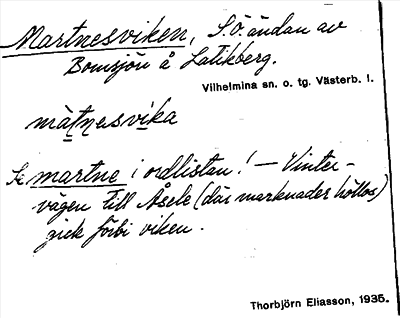 Martnesviken, S.Ö. ändan av
Bomsjön å Latikberg.
Vilhelmina sn. o. tg. Västerb. l.
màt̠n̠esvi̠ka
Se martne i ordlistan! — Vinter-
vägen till Åsele (där marknader höllos)
gick förbi viken.
Thorbjörn Eliasson, 1935.